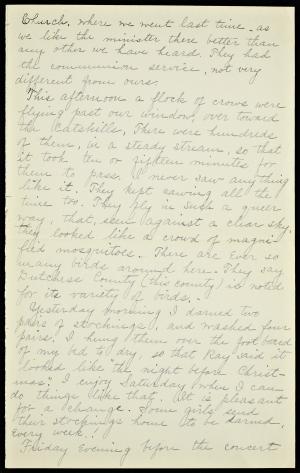 Church, where we went last time - as
we like the minister there better than
any other we have heard. They had
the communion service, not very
different from ours.
This afternoon a flock of crows were
flying past our window, over toward
the Catskills. There were hundreds
of them, in a steady stream, so that
it took ten or fifteen minutes for
them to pass. I never saw anything
like it. They kept sawing all the
time too. They fly in such a queer
way, that, seen against a clear sky,
they looked like a crowd of magni-
fied mosquitoes. There are ever so
many birds around here. They say
Dutchess County (this county) is noted
for its variety of birds.
Yesterday morning I darned two
pairs of stockings, and washed four
pairs. I hung them over the foot board
of my bed to dry, so that Ray said it
looked like the night before Christ-
mas! I enjoy Saturday when I can
do things like that. It is pleasant
for a change. Some girls send
their stockings home to be darned,
every week!
Friday evening before the concert